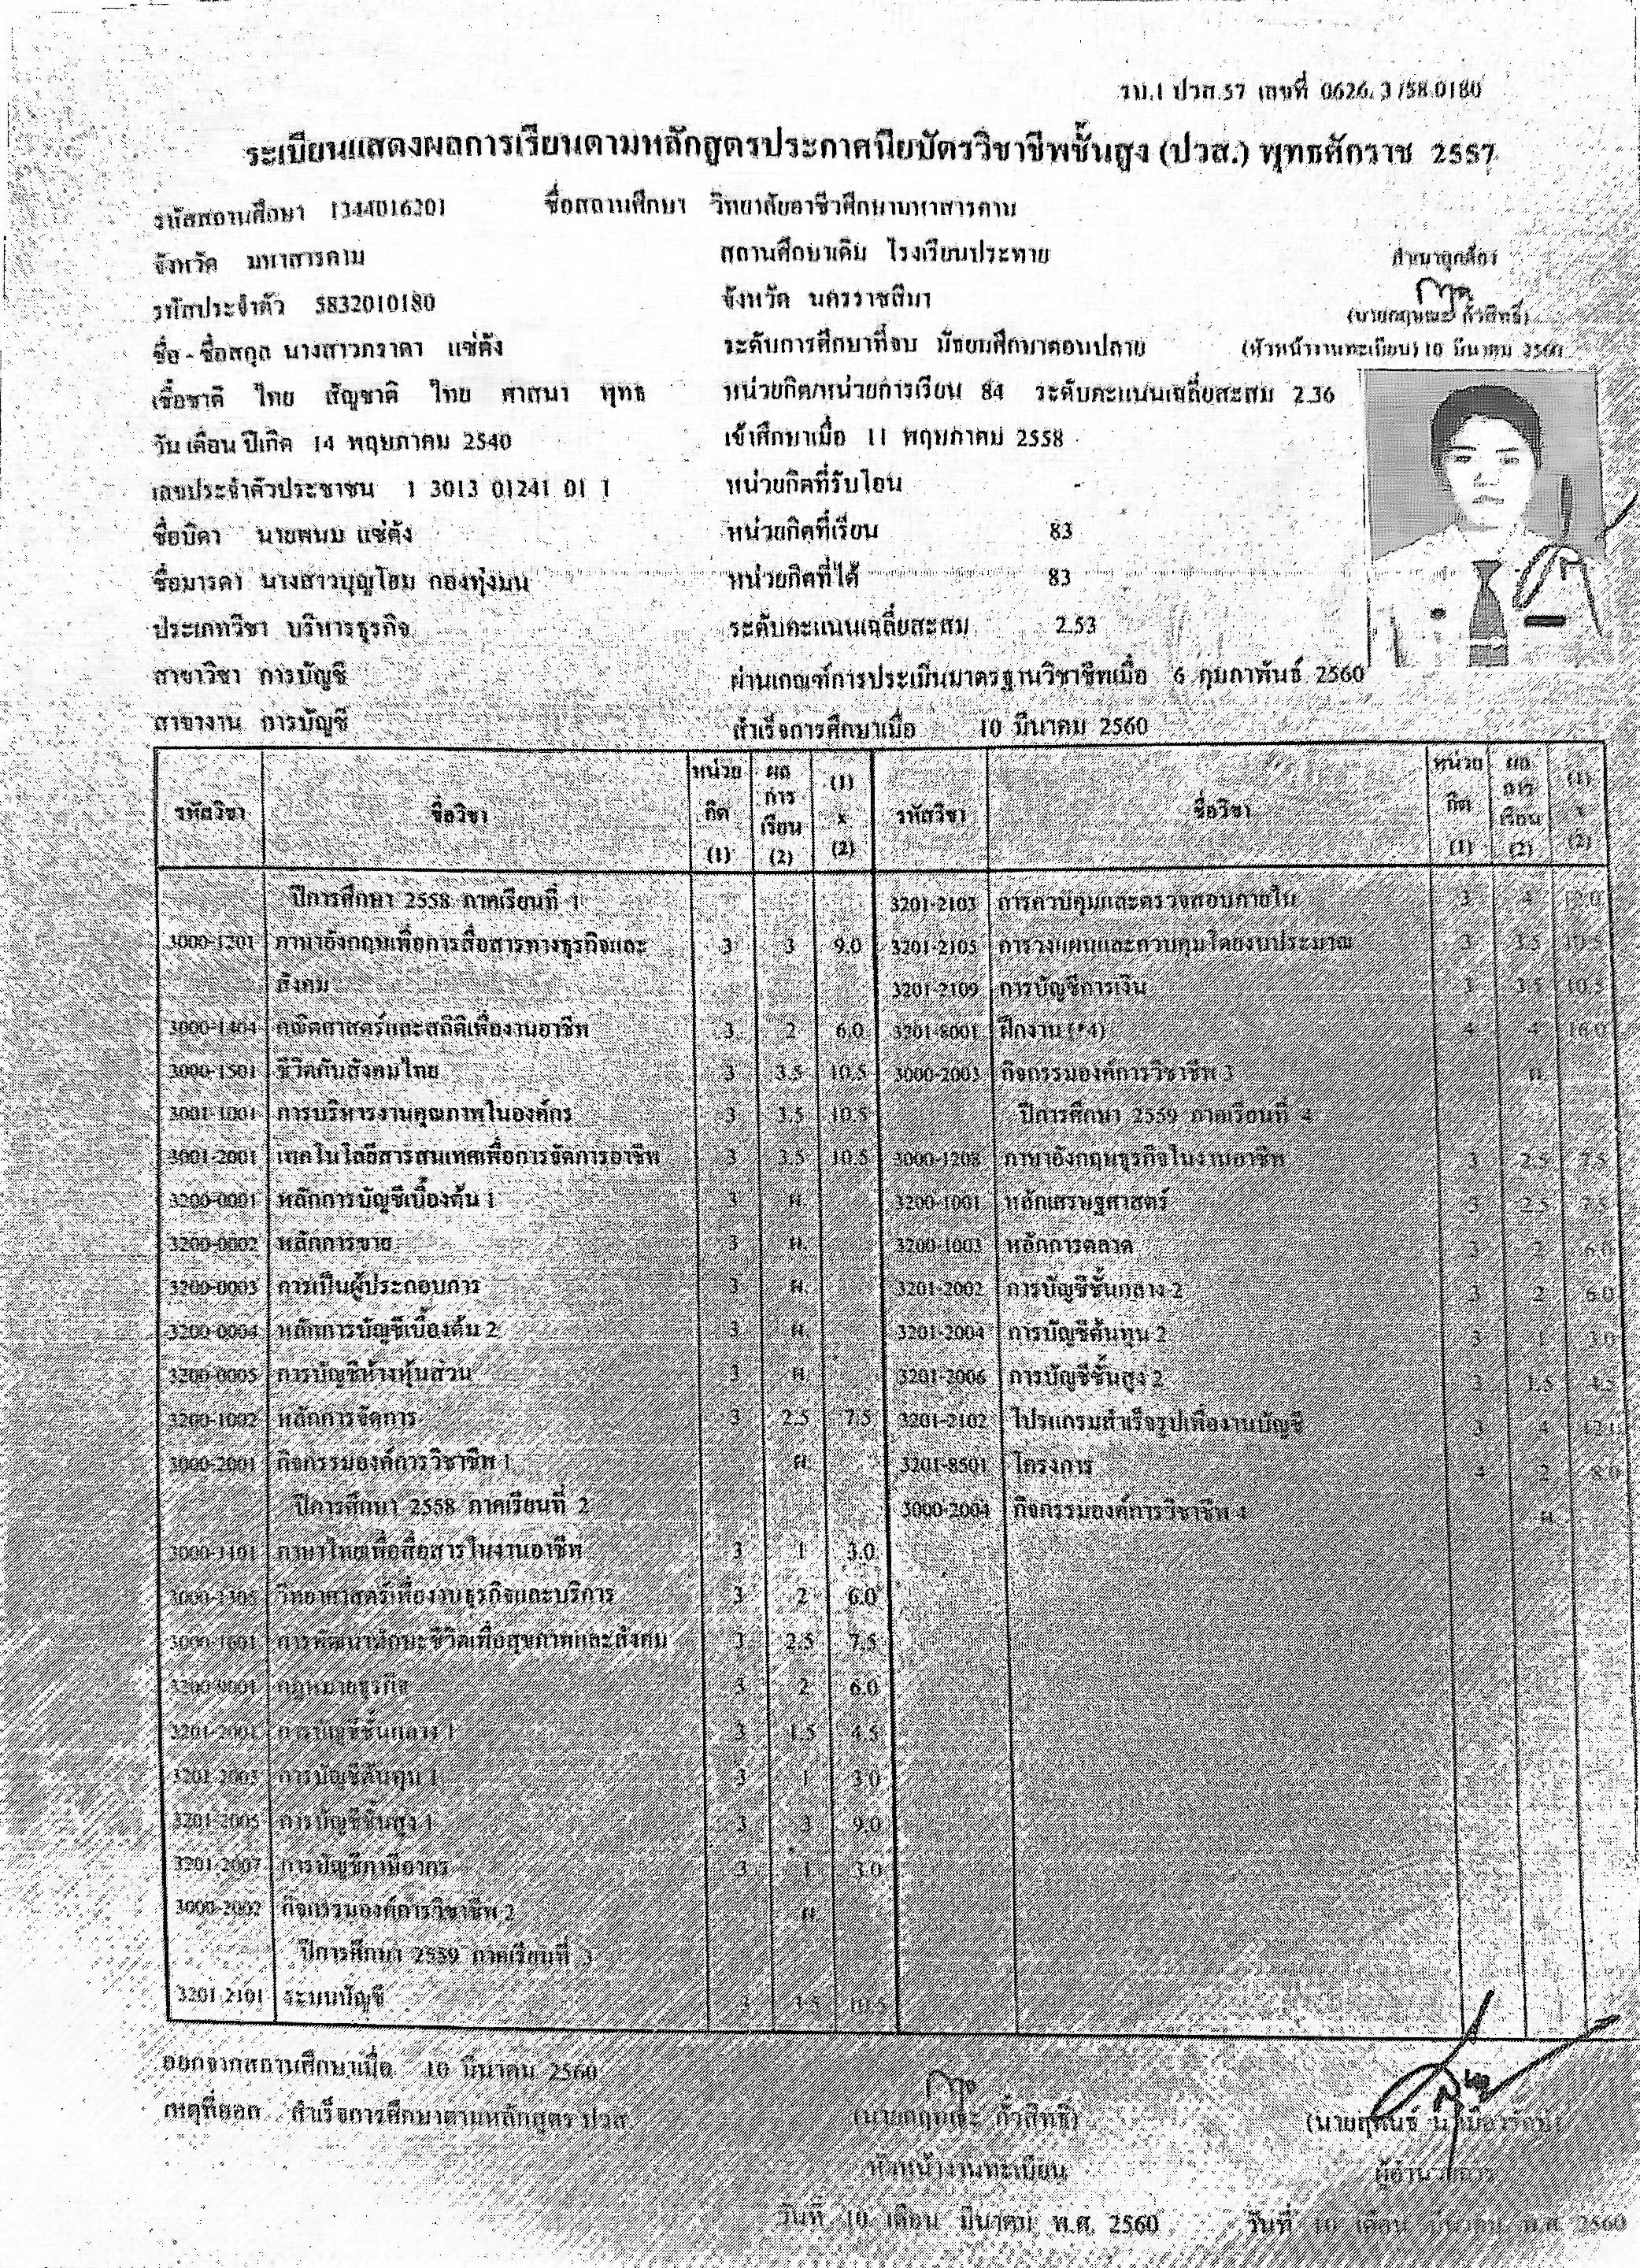 รบ.1 ปวส.57 เลขที่ 0626.3/58.0180
ระเบียนแสดงผลการเรียนตามหลักสูตรประกาศนียบัตรวิชาชีพชั้นสูง (ปวส.) พุทธศักราช 2557
รหัสสถานศึกษา 1344016201 ชื่อสถานศึกษา วิทยาลัยอาชีวศึกษามหาสารคาม
จังหวัด มหาสารคาม สถานศึกษาเดิม โรงเรียนประทาย สำเนาถูกต้อง
รหัสประจำตัว 5832010180 จังหวัด นครราชสีมา
(นายกฤษณะ ก้ำสิทธิ์)
ชื่อ - ชื่อสกุล นางสาวภราดา แซ่ตัง ระดับการศึกษาที่จบ มัธยมศึกษาตอนปลาย (หัวหน้างานทะเบียน) 10 มีนาคม 2560
เชื้อชาติ ไทย สัญชาติ ไทย ศาสนา พุทธ หน่วยกิต/หน่วยการเรียน 84 ระดับคะแนนเฉลี่ยสะสม 2.36
วัน เดือน ปีเกิด 14 พฤษภาคม 2540 เข้าศึกษาเมื่อ 11 พฤษภาคม 2558
เลขประจำตัวประชาชน 1 3013 01241 01 1 หน่วยกิตที่รับโอน -
ชื่อบิดา นายพนม แซ่ตัง หน่วยกิตที่เรียน 83
ชื่อมารดา นางสาวบุญโฮม กองทุ่งมน หน่วยกิตที่ได้ 83
ประเภทวิชา บริหารธุรกิจ ระดับคะแนนเฉลี่ยสะสม 2.53
สาขาวิชา การบัญชี ผ่านเกณฑ์การประเมินมาตรฐานวิชาชีพเมื่อ 6 กุมภาพันธ์ 2560
สาขางาน การบัญชี สำเร็จการศึกษาเมื่อ 10 มีนาคม 2560
รหัสวิชา ชื่อวิชา หน่วยกิต (1) ผลการเรียน (2) (1) x (2) รหัสวิชา ชื่อวิชา หน่วยกิต (1) ผลการเรียน (2) (1) x (2)
ปีการศึกษา 2558 ภาคเรียนที่ 1
3000-1201 ภาษาอังกฤษเพื่อการสื่อสารทางธุรกิจและ 3 3 9.0
สังคม
3000-1404 คณิตศาสตร์และสถิติเพื่องานอาชีพ 3 2 6.0
3000-1501 ชีวิตกับสังคมไทย 3 3.5 10.5
3001-1001 การบริหารงานคุณภาพในองค์กร 3 3.5 10.5
3001-2001 เทคโนโลยีสารสนเทศเพื่อการจัดการอาชีพ 3 3.5 10.5
3200-0001 หลักการบัญชีเบื้องต้น 1 3 ผ.
3200-0002 หลักการขาย 3 ผ.
3200-0003 การเป็นผู้ประกอบการ 3 ผ.
3200-0004 หลักการบัญชีเบื้องต้น 2 3 ผ.
3200-0005 การบัญชีห้างหุ้นส่วน 3 ผ.
3200-1002 หลักการจัดการ 3 2.5 7.5
3000-2001 กิจกรรมองค์การวิชาชีพ 1 ผ.
ปีการศึกษา 2558 ภาคเรียนที่ 2
3000-1101 ภาษาไทยเพื่อสื่อสารในงานอาชีพ 3 1 3.0
3000-1305 วิทยาศาสตร์เพื่องานธุรกิจและบริการ 3 2 6.0
3000-1601 การพัฒนาทักษะชีวิตเพื่อสุขภาพและสังคม 3 2.5 7.5
3200-9001 กฎหมายธุรกิจ 3 2 6.0
3201-2001 การบัญชีชั้นกลาง 1 3 1.5 4.5
3201-2003 การบัญชีต้นทุน 1 3 1 3.0
3201-2005 การบัญชีชั้นสูง 1 3 3 9.0
3201-2007 การบัญชีภาษีอากร 3 1 3.0
3000-2002 กิจกรรมองค์การวิชาชีพ 2 ผ.
ปีการศึกษา 2559 ภาคเรียนที่ 3
3201-2101 ระบบบัญชี 3 3.5 10.5
3201-2103 การควบคุมและตรวจสอบภายใน 3 4 12.0
3201-2105 การวางแผนและควบคุมโดยงบประมาณ 3 3.5 10.5
3201-2109 การบัญชีการเงิน 3 3.5 10.5
3201-8001 ฝึกงาน (*4) 4 4 16.0
3000-2003 กิจกรรมองค์การวิชาชีพ 3 ผ.
ปีการศึกษา 2559 ภาคเรียนที่ 4
3000-1208 ภาษาอังกฤษธุรกิจในงานอาชีพ 3 2.5 7.5
3200-1001 หลักเศรษฐศาสตร์ 3 2.5 7.5
3200-1003 หลักการตลาด 3 2 6.0
3201-2002 การบัญชีชั้นกลาง 2 3 2 6.0
3201-2004 การบัญชีต้นทุน 2 3 1 3.0
3201-2006 การบัญชีชั้นสูง 2 3 1.5 4.5
3201-2102 โปรแกรมสำเร็จรูปเพื่องานบัญชี 3 4 12.0
3201-8501 โครงการ 4 2 8.0
3000-2004 กิจกรรมองค์การวิชาชีพ 4 ผ.
ออกจากสถานศึกษาเมื่อ 10 มีนาคม 2560
เหตุที่ออก สำเร็จการศึกษาตามหลักสูตร ปวส.
(นายกฤษณะ ก้ำสิทธิ์)
หัวหน้างานทะเบียน ผู้อำนวยการ
วันที่ 10 เดือน มีนาคม พ.ศ. 2560 วันที่ 10 เดือน มีนาคม พ.ศ. 2560